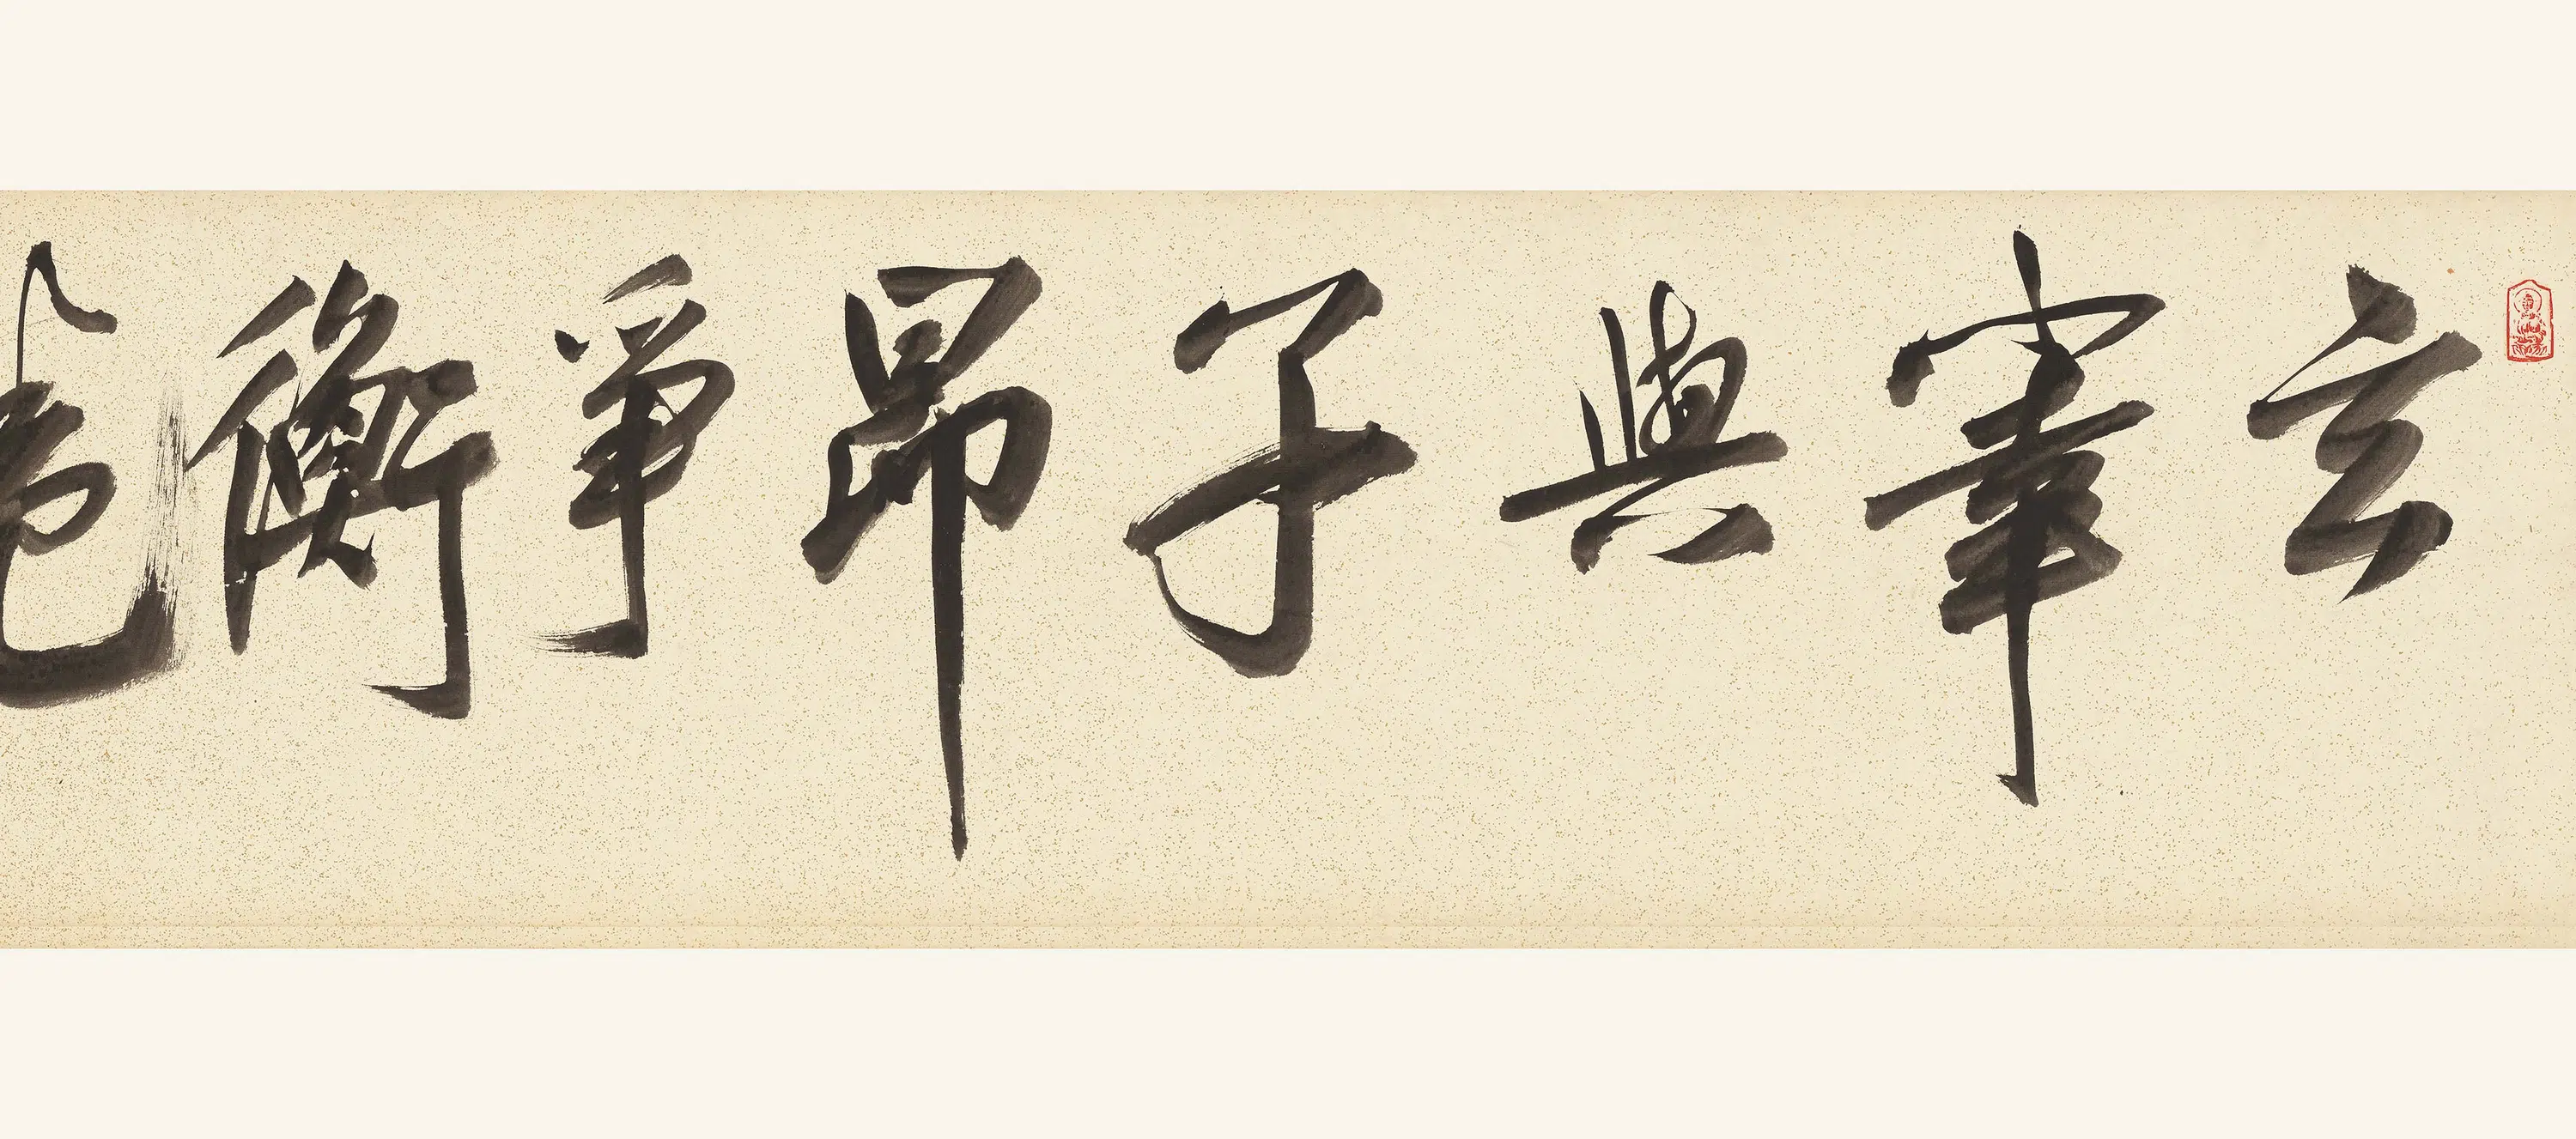 玄宰與子昂爭衡